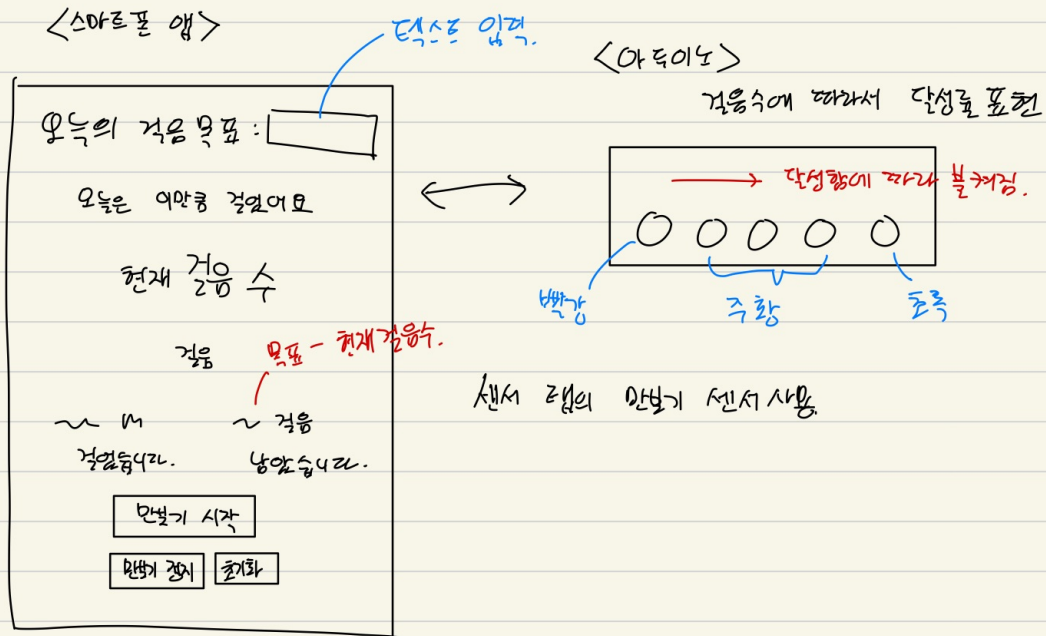 <스마트폰 앱>
텍스트 입력.
오늘의 걸음 목표 :
오늘은 이만큼 걸었어요
현재 걸음 수
걸음
목표 - 현재걸음수.
~ m
걸었습니다.
~ 걸음
남았습니다.
만보기 시작
만보기 정지
초기화
<아두이노>
걸음수에 따라서 달성률 표현
달성함에 따라 불 켜짐.
빨강
주황
초록
센서 탭의 만보기 센서 사용.